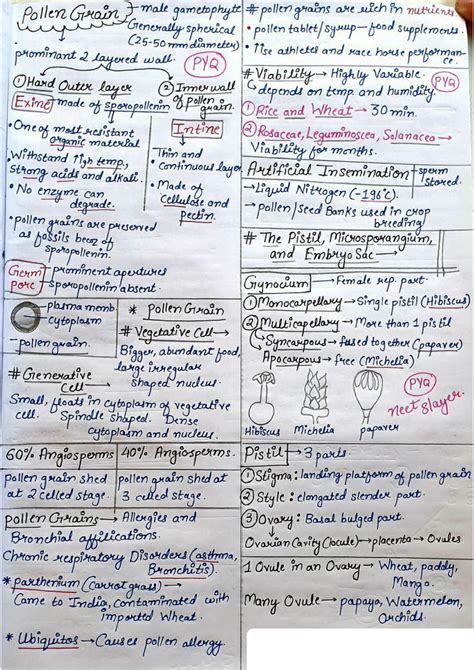 Pollen Grain → male gametophyte
Generally spherical
(25-50 mm diameter)
prominant 2 layered wall.
PYQ
① Hard Outer layer
Exine made of sporopollenin
• One of most resistant
organic material
• Withstand high temp,
strong acids and alkali.
• No enzyme can
degrade.
• pollen grains are preserved
as fossils becz of
sporopollenin.
② Inner wall
of pollen
grain.
Intine
• Thin and
continuous layer
• Made of
Cellulose and
pectin.
Germ
pore
prominent apertures
sporopollenin absent.
plasma memb
cytoplasm
pollen grain.
* Pollen Grain
# Vegetative Cell →
Bigger, abundant food,
large irregular
shaped nucleus.
# Generative
Cell →
Small, floats in cytoplasm of vegetative
cell. Spindle shaped. Dense
cytoplasm and nucleus.
60% Angiosperms
pollen grain shed
at 2 celled stage.
40% Angiosperms.
pollen grain shed at
3 celled stage.
pollen Grains → Allergies and
Bronchial afflications.
Chronic respiratory Disorders (asthma,
Bronchitis).
* parthenium (Carrot grass) →
Came to India, contaminated with
imported Wheat.
* Ubiquitos → Causes pollen allergy.
# pollen grains are rich in nutrients
• pollen tablet/syrup - food supplements.
• ↑ise athletes and race horse performance.
# Viability → Highly Variable.
depends on temp and humidity.
PYQ
① Rice and Wheat → 30 min.
② Rosaceae, Leguminoscea, Solanacea →
Viability for months.
Artificial Insemination → sperm
stored.
→ Liquid Nitrogen (-196°c).
→ pollen/Seed Banks used in crop
breeding
# The Pistil, Microsporangium,
and Embryo Sac →
Gynocium → Female rep. part
① Monocarpellary → Single pistil (Hibiscus)
② Multicapellary → More than 1 pistil
Syncarpous → fused together (papaver)
Apocarpous → free (Michelia)
PYQ
neet slayer.
Hibiscus Michelia papaver
Pistil → 3 parts.
① Stigma: landing platform of pollen grain
② Style: elongated slender part.
③ Ovary: Basal bulged part.
Ovarian Cavity (locule) → placenta → Ovules.
1 Ovule in an Ovary → Wheat, paddy,
Mango.
Many Ovule → papaya, Watermelon,
Orchids.